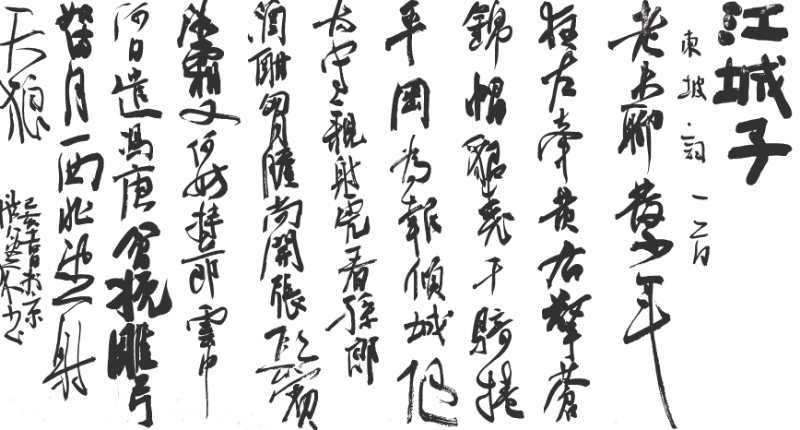 江城子
東坡·詞
老夫聊發少年
狂左牽黃右擎蒼
錦帽貂裘千騎捲
平岡為報傾城隨
太守親射虎看孫郎
酒酣胸膽尚開張鬢
微霜又何妨持節雲中
何日遣馮唐會挽雕弓
如滿月西北望射
天狼